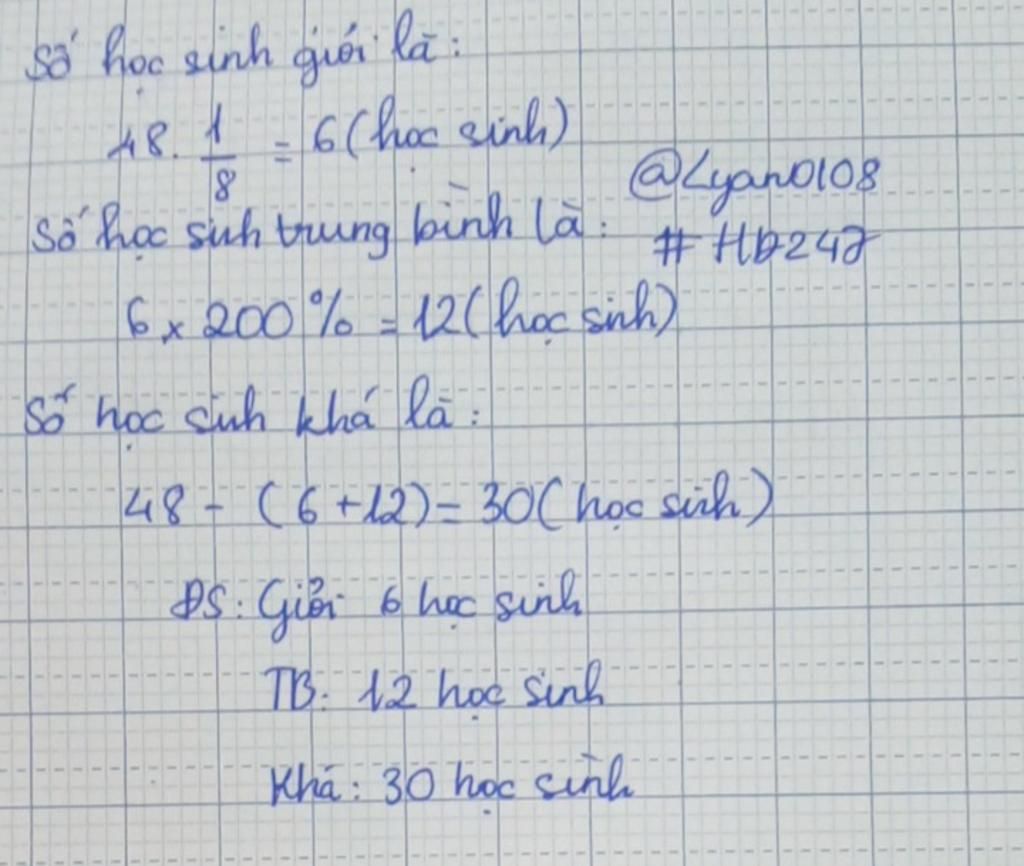 Số học sinh giỏi là:
48. 1/8 = 6 (học sinh)
@Lyan0108
Số học sinh trung bình là:
#HD247
6 x 200% = 12 (học sinh)
Số học sinh khá là:
48 - (6 + 12) = 30 (học sinh)
ĐS: Giỏi 6 học sinh
TB: 12 học sinh
Khá: 30 học sinh